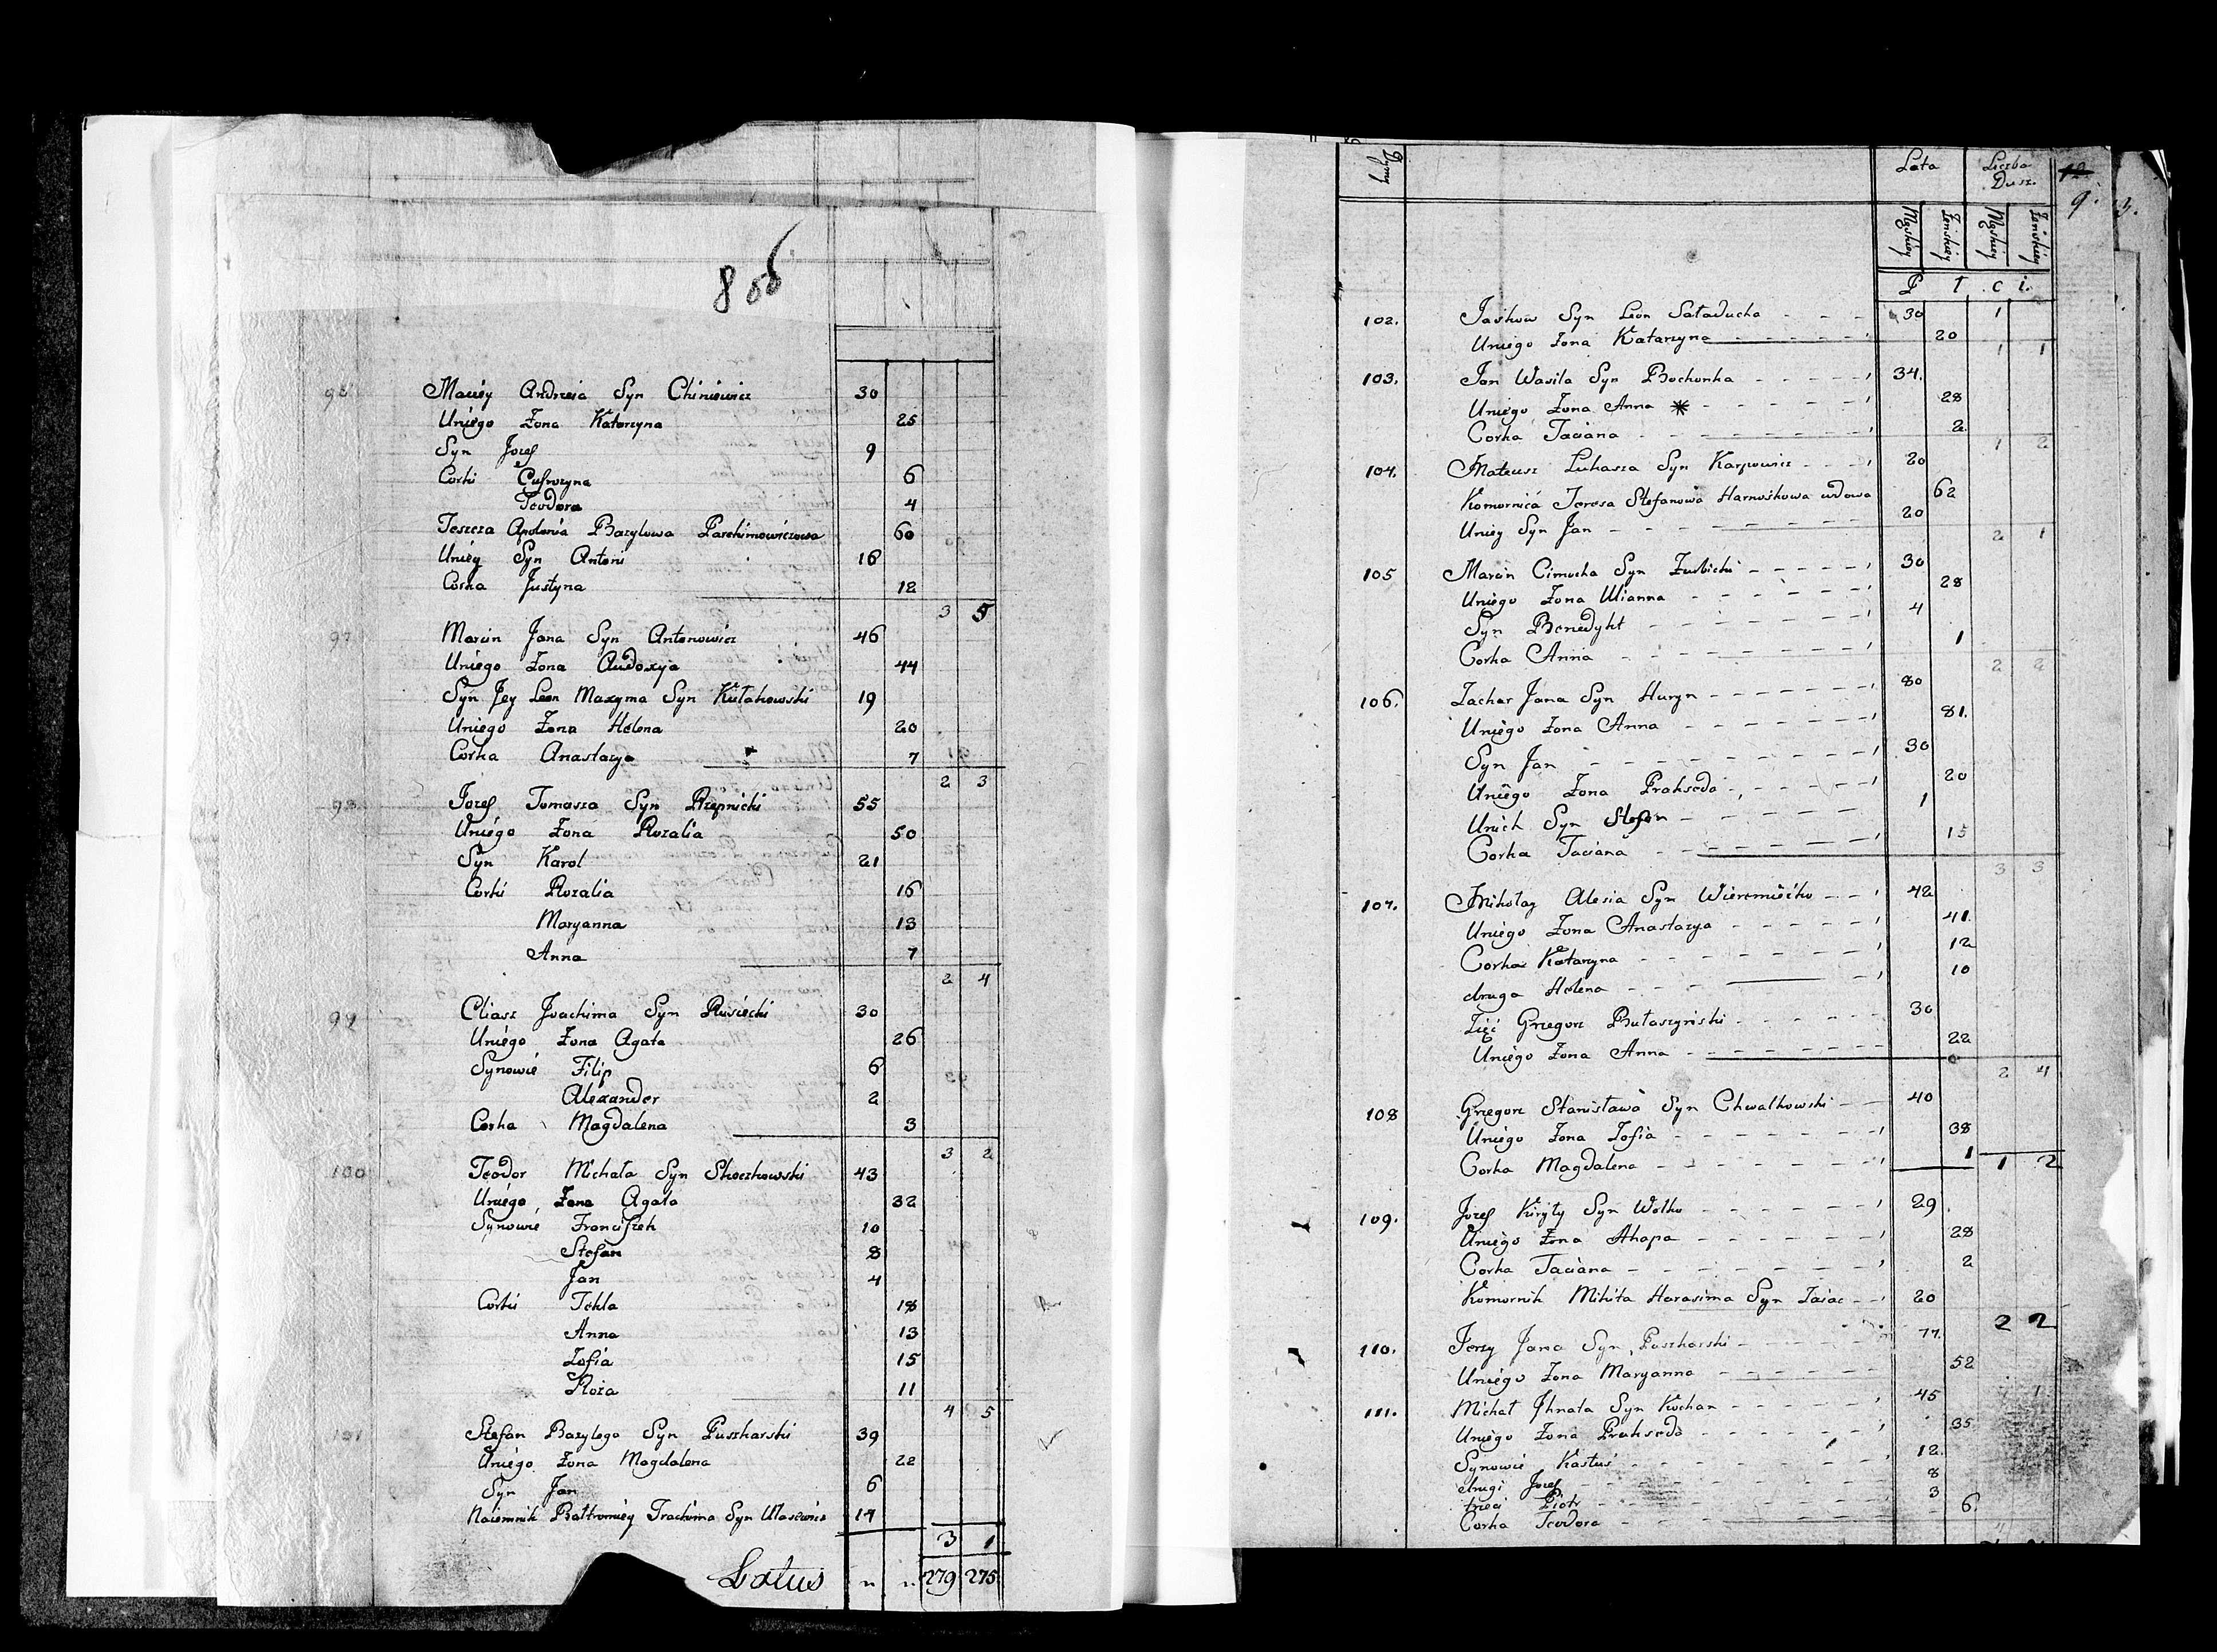 8 об
96 Maciéy Andrzeia Syn Chiniewicz 30
Uniégo Zona Katarzyna 25
Syn Jozef 9
Corki Eufrozyna 6
Teodora 4
Teszcza Apolonia Bazylowa Parchimowiczowa 60
Uniéy Syn Antoni 16
Corka Justyna 12
3 5
97 Marcin Jana Syn Antonowicz 46
Uniego Zona Audoxyja 44
Syn Jey Leon Maxyma Syn Kułakowski 19
Uniego Zona Helena 20
Corka Anastazya 7
2 3
98 Jozef Tomasza Syn Rzepnicki 55
Uniégo Zona Rozalia 50
Syn Karol 21
Corki Rozalia 16
Maryanna 13
Anna 7
2 4
99 Eliasz Joachima Syn Rusiecki 30
Uniégo Zona Agata 26
Synowié Filip 6
Alexander 2
Corka Magdalena 3
3 2
100 Teodor Michała Syn Skoczkowski 43
Uniégo Zona Agata 32
Synowié Franciszek 10
Stefan 8
Jan 4
Corki Tekla 18
Anna 13
Zofia 15
Roza 11
4 5
101 Stefan Bazylego Syn Puszkarski 39
Uniégo Zona Magdalena 22
Syn Jan 6
Naiemnik Bałtromiéy Trachima Syn Ułasewicz 17
3 1
Latus " " 279 275
Dymy Lata Liczba Dusz.
12 9. 13.
Męskiey Zenskiey Męskiey Zenskiey
P ł c i.
102. Jaśkow Syn Leon Saładucha 30 1
Uniégo Zona Katarzyna 20
1 1
103. Jan Wasila Syn Bochonka 34.
Uniégo Zona Anna * 28
Corka Taciana 2.
1 2
104. Mateusz Lukasza Syn Karpowicz 20
Komornica Teresa Stefanowa Harnoskowa wdowa 62
Uniey Syn Jan 20
2 1
105 Marcin Cimocha Syn Zubicki 30
Uniégo Zona Ulianna 28
Syn Benedykt 4
Corka Anna 1
2 2
106. Zachar Jana Syn Huryn 80
Uniégo Zona Anna 81.
Syn Jan 30
Uniégo Zona Prakseda 20
Unich Syn Stefan 1
Corka Taciana 15
3 3
107. Mikołay Alesia Syn Wieremieiko 42
Uniego Zona Anastazya 41.
Corka Katarzyna 12
druga Helena 10
Zięć Grzegorz Bułaszyński 30
Uniégo Zona Anna 22
2 4
108 Grzegorz Stanisława Syn Chwalkowski 40
Uniégo Zona Zofia 38
Corka Magdalena 1
1 2
109. Jozef Kiryły Syn Wołko 29
Uniégo Zona Ahapa 28
Corka Taciana 2
Komornik Mikita Harasima Syn Zaiac 20
2 2
110. Jerzy Jana Syn Puszkarski 77.
Uniégo Zona Maryanna 52
1 1
111. Michał Jhnata Syn Kochan 45
Uniégo Zona Prakseda 35
Synowié Kastuś 12.
drugi Jozef 8
trzeci Piotr 3
Corka Teodora 6.